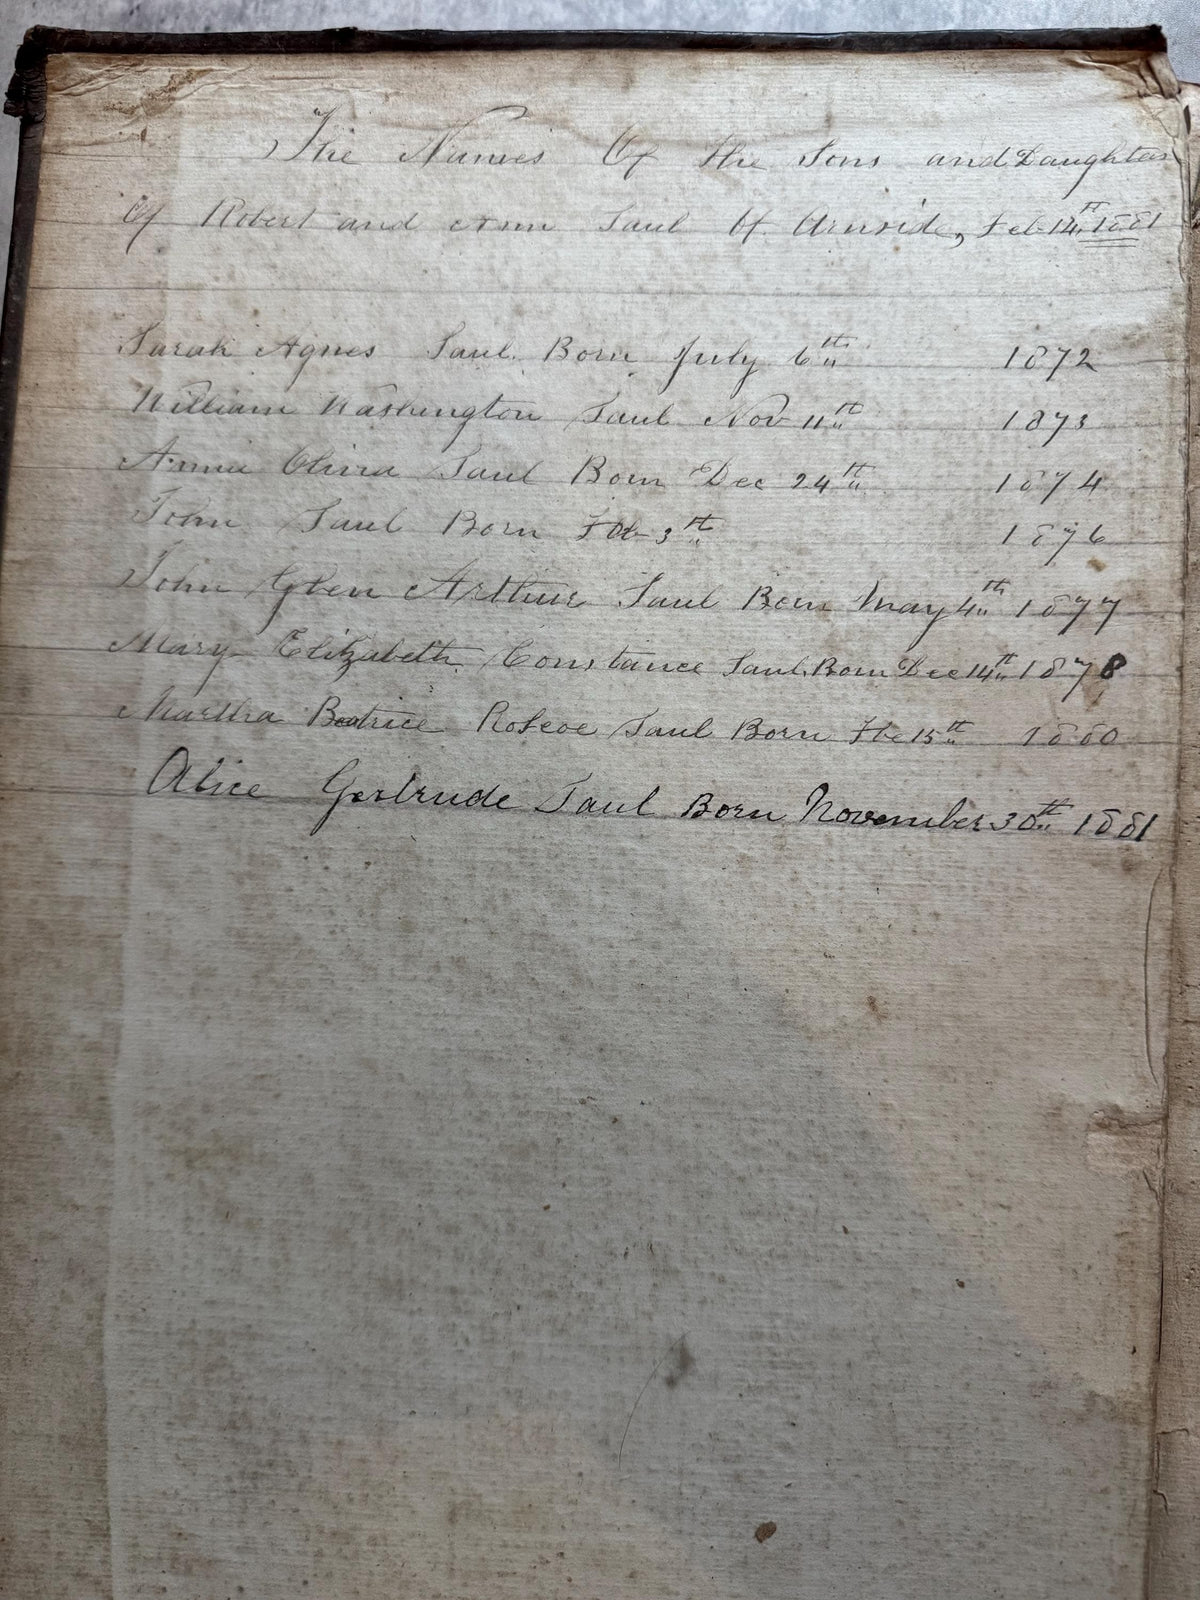 The Names Of the Sons and Daughters
Of Robert and Ann Saul Of Arnside, Feb 14th 1881
Sarah Agnes Saul. Born July 6th 1872
William Washington Saul Nov 11th 1873
Annie Olivia Saul Born Dec 24th 1874
John Saul Born Feb 3th 1876
John Glen Arthur Saul Born May 4th 1877
Mary Elizabeth Constance Saul. Born Dec 14th 1878
Martha Beatrice Roscoe Saul Born Fbe 15th 1880
Alice Gertrude Saul Born November 30th 1881